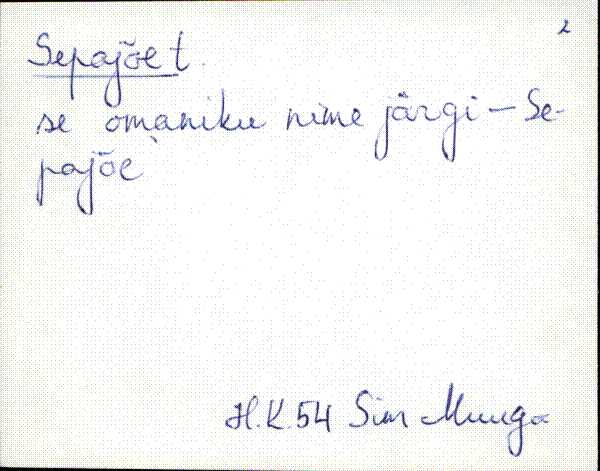 2
Sepajõe t.
se omaniku nime järgi – Se-
pajõe
H.K. 54 Sim Muuga